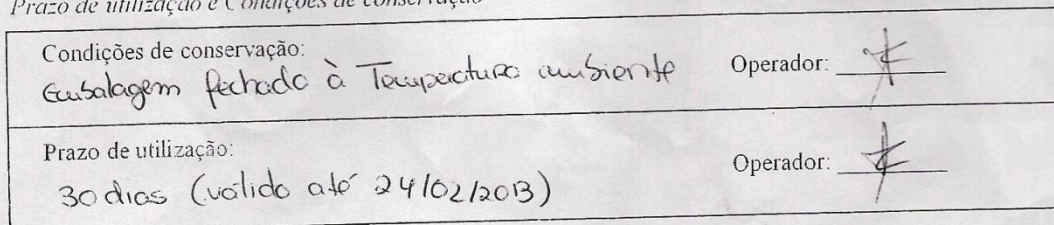 Prazo de utilização e Condições de conservação
Condições de conservação:
Embalagem fechada à Temperatura ambiente Operador:
Prazo de utilização:
30 dias (válido até 24/02/2013) Operador: